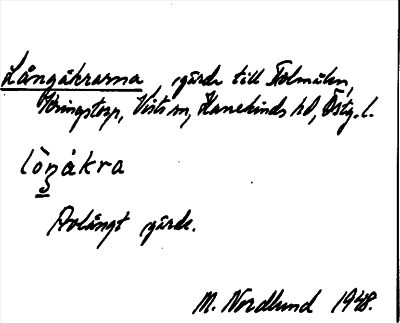 Långåkrarna, gärde till Tolmålen,
Viringstorp, Vists sn, Hanekinds hd, Östg. l.
lòŋåkra
Avlångt gärde.
M. Nordlund 1948.